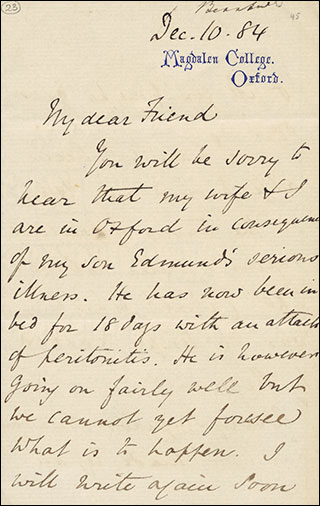 23
Dec. 10. 84
Magdalen College.
Oxford.
My dear Friend
You will be sorry to
hear that my wife & I
are in Oxford in consequence
of my son Edmund's serious
illness. He has now been in
bed for 18 days with an attack
of peritonitis. He is however
going on fairly well but
we cannot yet foresee
what is to happen. I
will write again soon